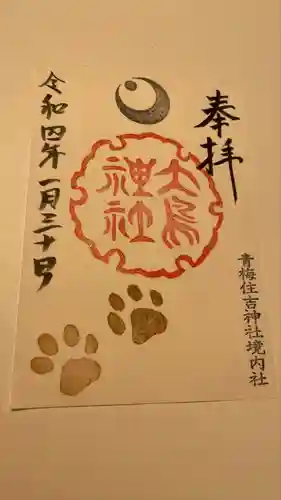 奉拝
大鳥
神社
令和四年一月三十日
青梅住吉神社境内社